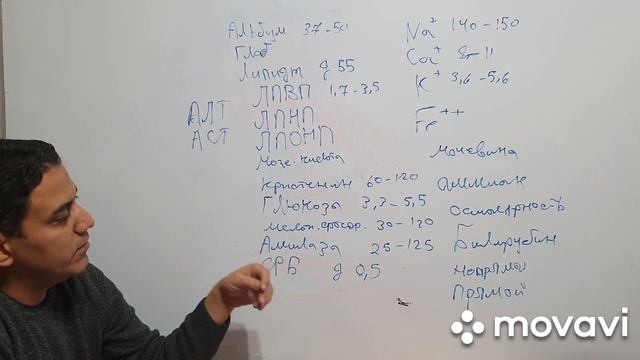 Альбум 37-50
Глоб
Липиды д 55
ЛПВП 1,7-3,5
АЛТ ЛПНП
АСТ ЛПОНП
Моче. кислота
Креатенин 60-120
Глюкоза 3,3-5,5
фосфор. 30-120
Амилаза 25-125
СРБ д 0,5
Na+ 140-150
Ca+ 8-11
K+ 3,6-5,6
Fe++
Мочевина
Аммиак
Осмолярность
Билирубин
непрямой
прямой
movavi